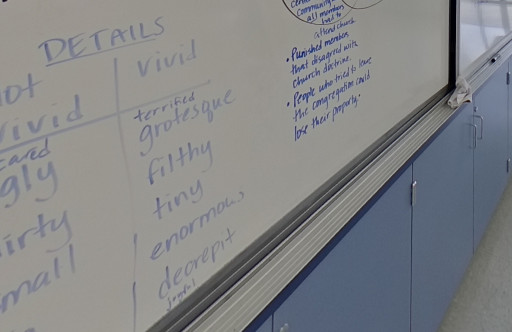 DETAILS
not vivid
vivid
scared
terrified
ugly
grotesque
dirty
filthy
small
tiny
enormous
decrepit
community
all members
had to
attend church
• Punished members
that disagreed with
church doctrine.
• People who tried to leave
the congregation could
lose their property.